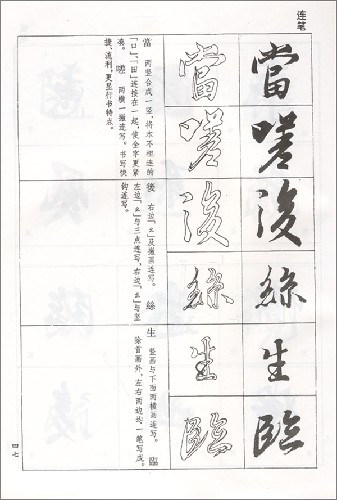 连笔
當
嗟
後
絲
生
臨
當
嗟
後
絲
生
臨
當 两竖合成一竖，将本不相连的
「口」、「田」连接在一起，使全字更紧
凑。 嗟 两横一撇连写。书写快
捷、流利，更显行书特点。
後 右边「幺」及撇画连写。 絲
左边「幺」与三点连写，右边「幺」与竖
钩连写。
生 竖画与下面两横画连写。 臨
除首画外，左右两边共一笔写成。
四七